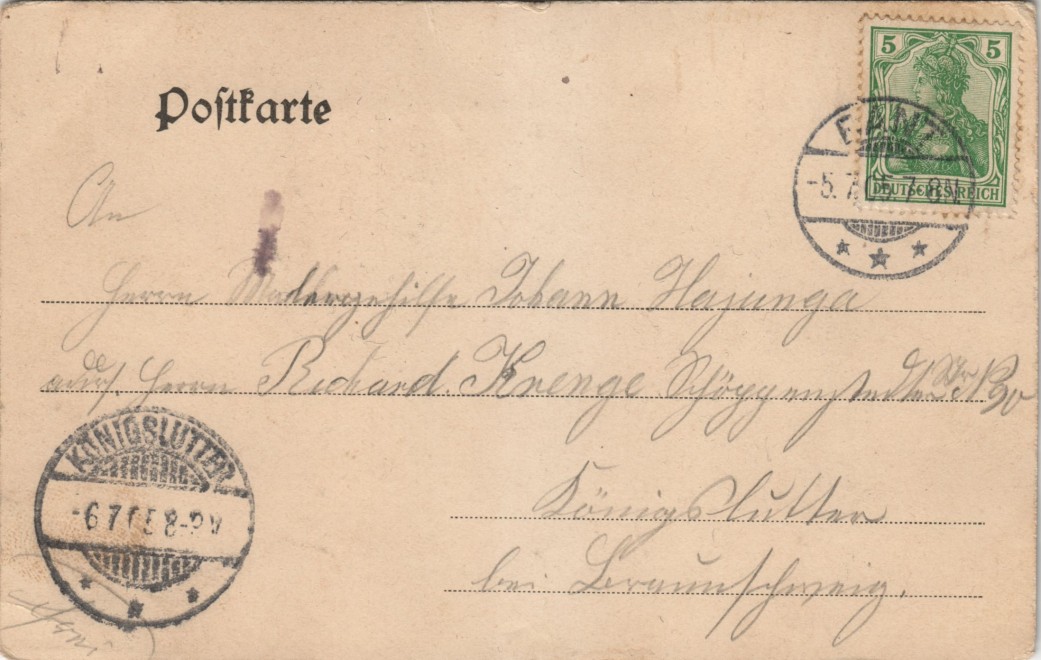 5 5
DEUTSCHES REICH
Postkarte
BANT
-5.7.05.7-8N.
An
Herrn Malergehilfe Johann Hajunga
adr. Herrn Richard Krenge Schöppenstedter Str. N 90
KÖNIGSLUTTER
-6.7.05.8-9V
Königslutter
bei Braunschweig.